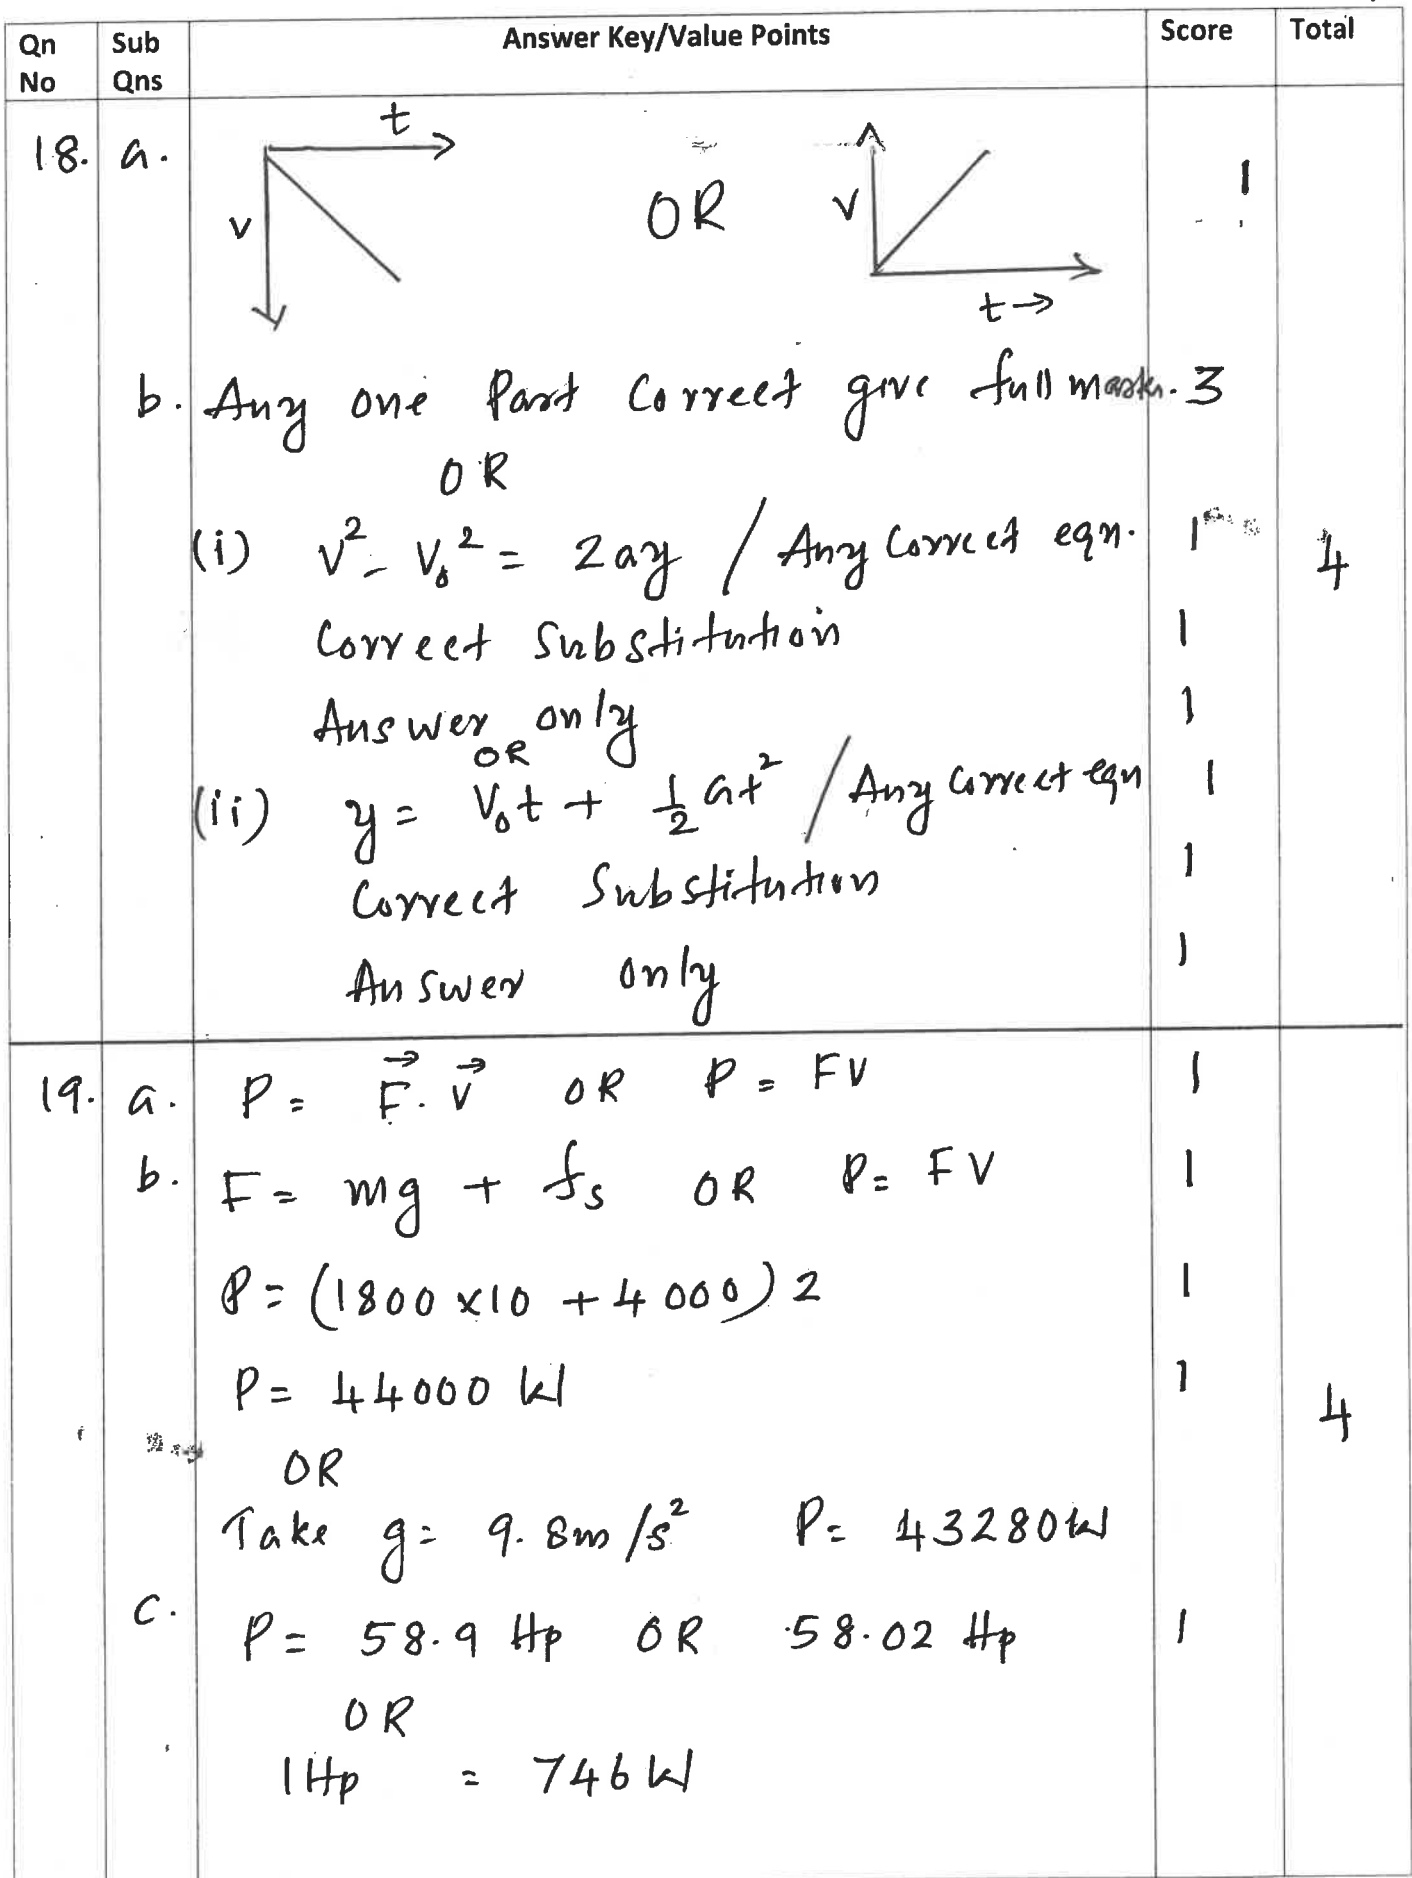 Qn No Sub Qns Answer Key/Value Points Score Total
18. a. t v OR v t→ 1
b. Any one Part Correct give full marks. 3
OR
(i) v² - v₀² = 2ay / Any Correct eqn. 1 4
Correct Substitution 1
Answer only 1
OR
(ii) y = V₀t + ½ at² / Any Correct eqn 1
Correct Substitution 1
Answer only 1
19. a. P = F⃗ . v⃗ OR P = FV 1
b. F = mg + fs OR P = FV 1
P = (1800 x10 + 4000) 2 1
P = 44000 W 1 4
OR
Take g = 9.8m/s² P = 43280W
c. P = 58.9 Hp OR 58.02 Hp 1
OR
1Hp = 746 W